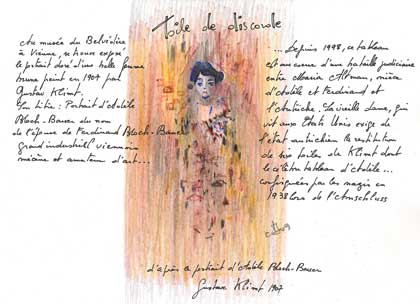 toile de discorde
Au musée du Belvédère
à Vienne, se trouve exposé
le portrait doré d'une belle jeune
femme peint en 1907 par
Gustav Klimt.
Son titre : Portrait d'Adèle
Bloch-Bauer du nom
de l'épouse de Ferdinand Bloch-Bauer
grand industriel viennois
mécène et amateur d'art...
... Depuis 1998, ce tableau
est au coeur d'une bataille judiciaire
entre Maria Altman, nièce
d'Adèle et Ferdinand et
l'Autriche. La vieille dame, qui
vit aux Etats Unis exige de
l'état autrichien la restitution
de toiles de Klimt dont
le célèbre tableau d'Adèle...
confisquées par les nazis en
1938 lors de l'Anschluss
d'après le portrait d'Adèle Bloch-Bauer
Gustav Klimt 1907